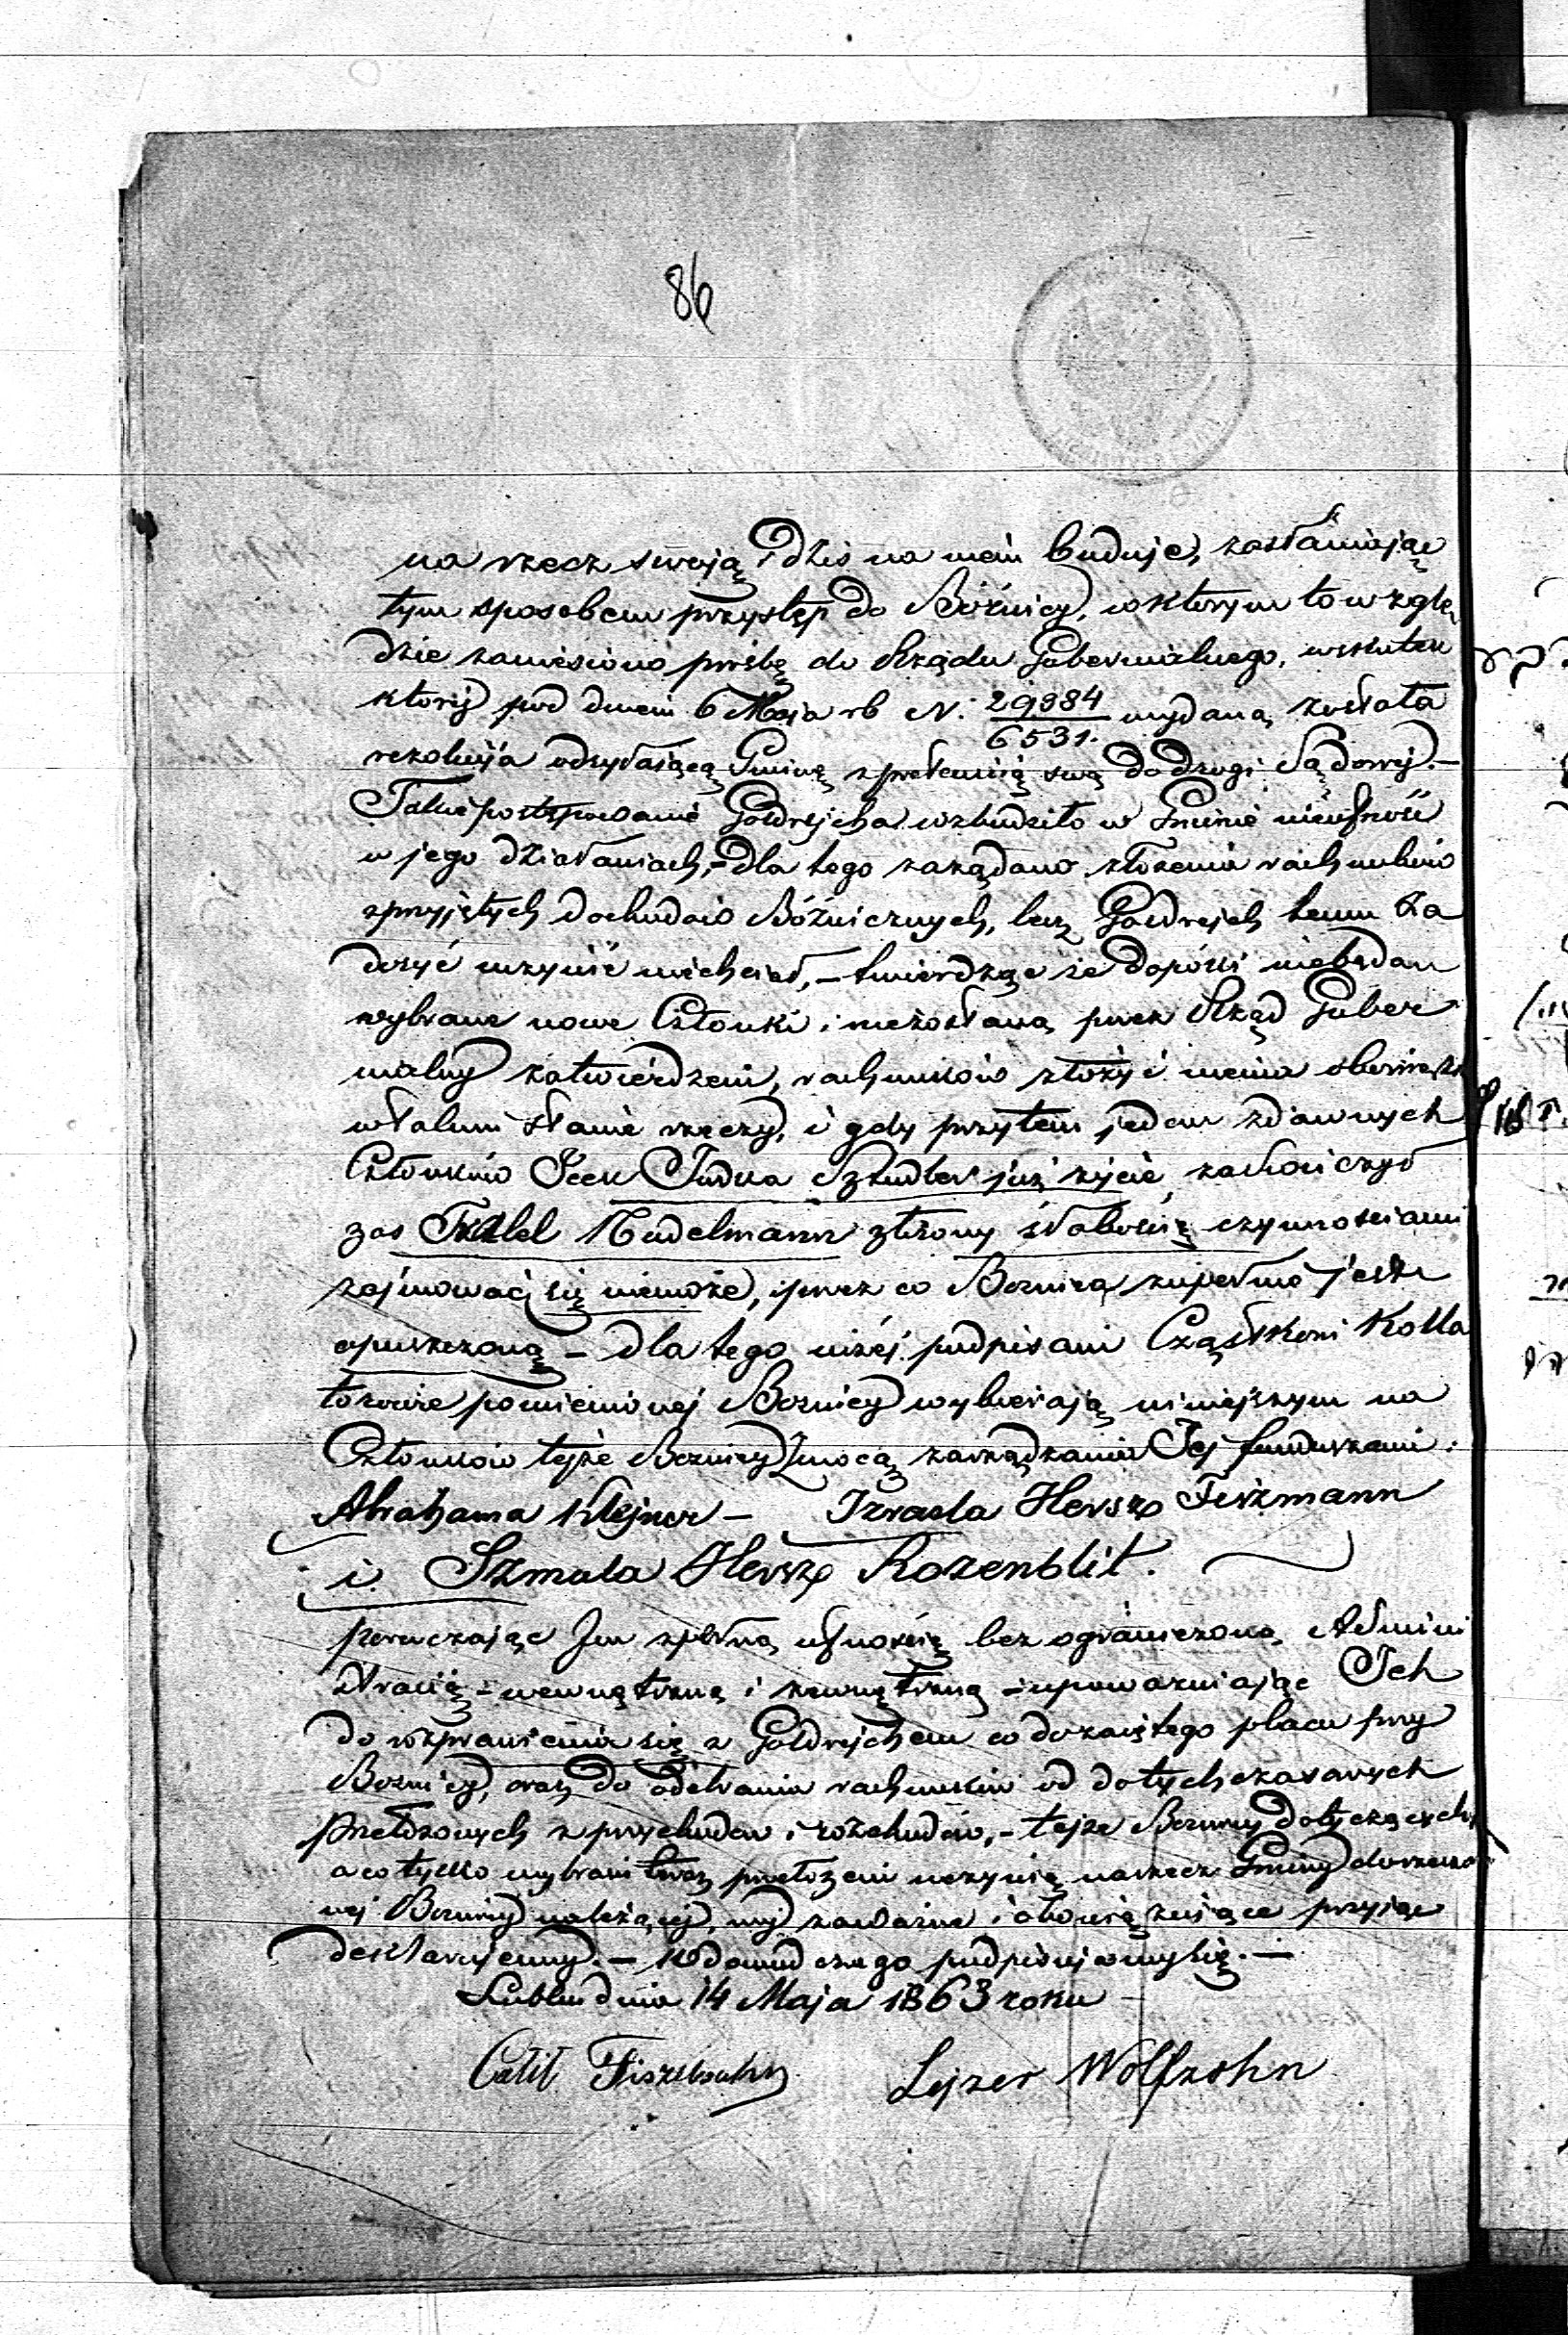 86
na rzecz swoją i dziś na niem buduje, zasłaniając
tym sposobem przystęp do Bóźnicy, w którym to wzglę
dzie zaniesiono prośbę do Rządu Gubernialnego, wskutek
któréj pod dniem 6 Maja rb N. 29984/6531. wydaną została
rezolucyja odsyłającą Gminę z pretensią swą do drogi Sądowej.—
Takie postępowanie Goldrejcha wzbudziło w Gminie nieufność
w jego działaniach,- dla tego zażądano złożenia rachunków
z przyjętych dochodów Bóźnicznych, lecz Goldrejch temu za
dosyć uczynić niechciał, - twierdząc że dopóki niebędą
wybrane nowe Członki i niezostaną przez Rząd Guber
nialny zatwierdzeni, rachunków złożyć niema obowiązku
w takim stanie rzeczy, i gdy przytem jeden z dawnych
Członków Icek Judka Szludler już życie zakończył
zaś Fralel Nudelmann złożony słabością czynnościami
zajmować się niemoże, przez co Boznica zupełnie jest
opuszczoną - dla tego niżéj podpisani Cząstkowi Kolla
torowie pomienionej Boznicy wybierają niniejszym na
Członków tejże Boznicy z mocą zarządzania Jej funduszami:
Abrahama Klejner - Izraela Hersz Fiszmann
i Szmula Hersz Rozenblit.
poruczając Im z pełną ufnością bez ograniczoną Admini
stracją - wewnątrzną i zewnętrzną - upoważniając Ich
do rozprawienia się z Goldrejchem co do zajętego placu przy
Boznicy, oraz do odebrania rachunków od dotychczasowych
Przełożonych z przychodów i rozchodów, - tejże Boznicy dotyczących
a co tylko wybrani teraz przełożeni uczynią na rzecz Gminy do rzeczo
nej Boznicy należącej, my za ważne i obowiązujące przyjąć
deklarujemy. - W dowód czego podpisujemy się. —
Lublin dnia 14 Maja 1863 roku
Calil Fiszelsohn Lejzer Wolfzohn